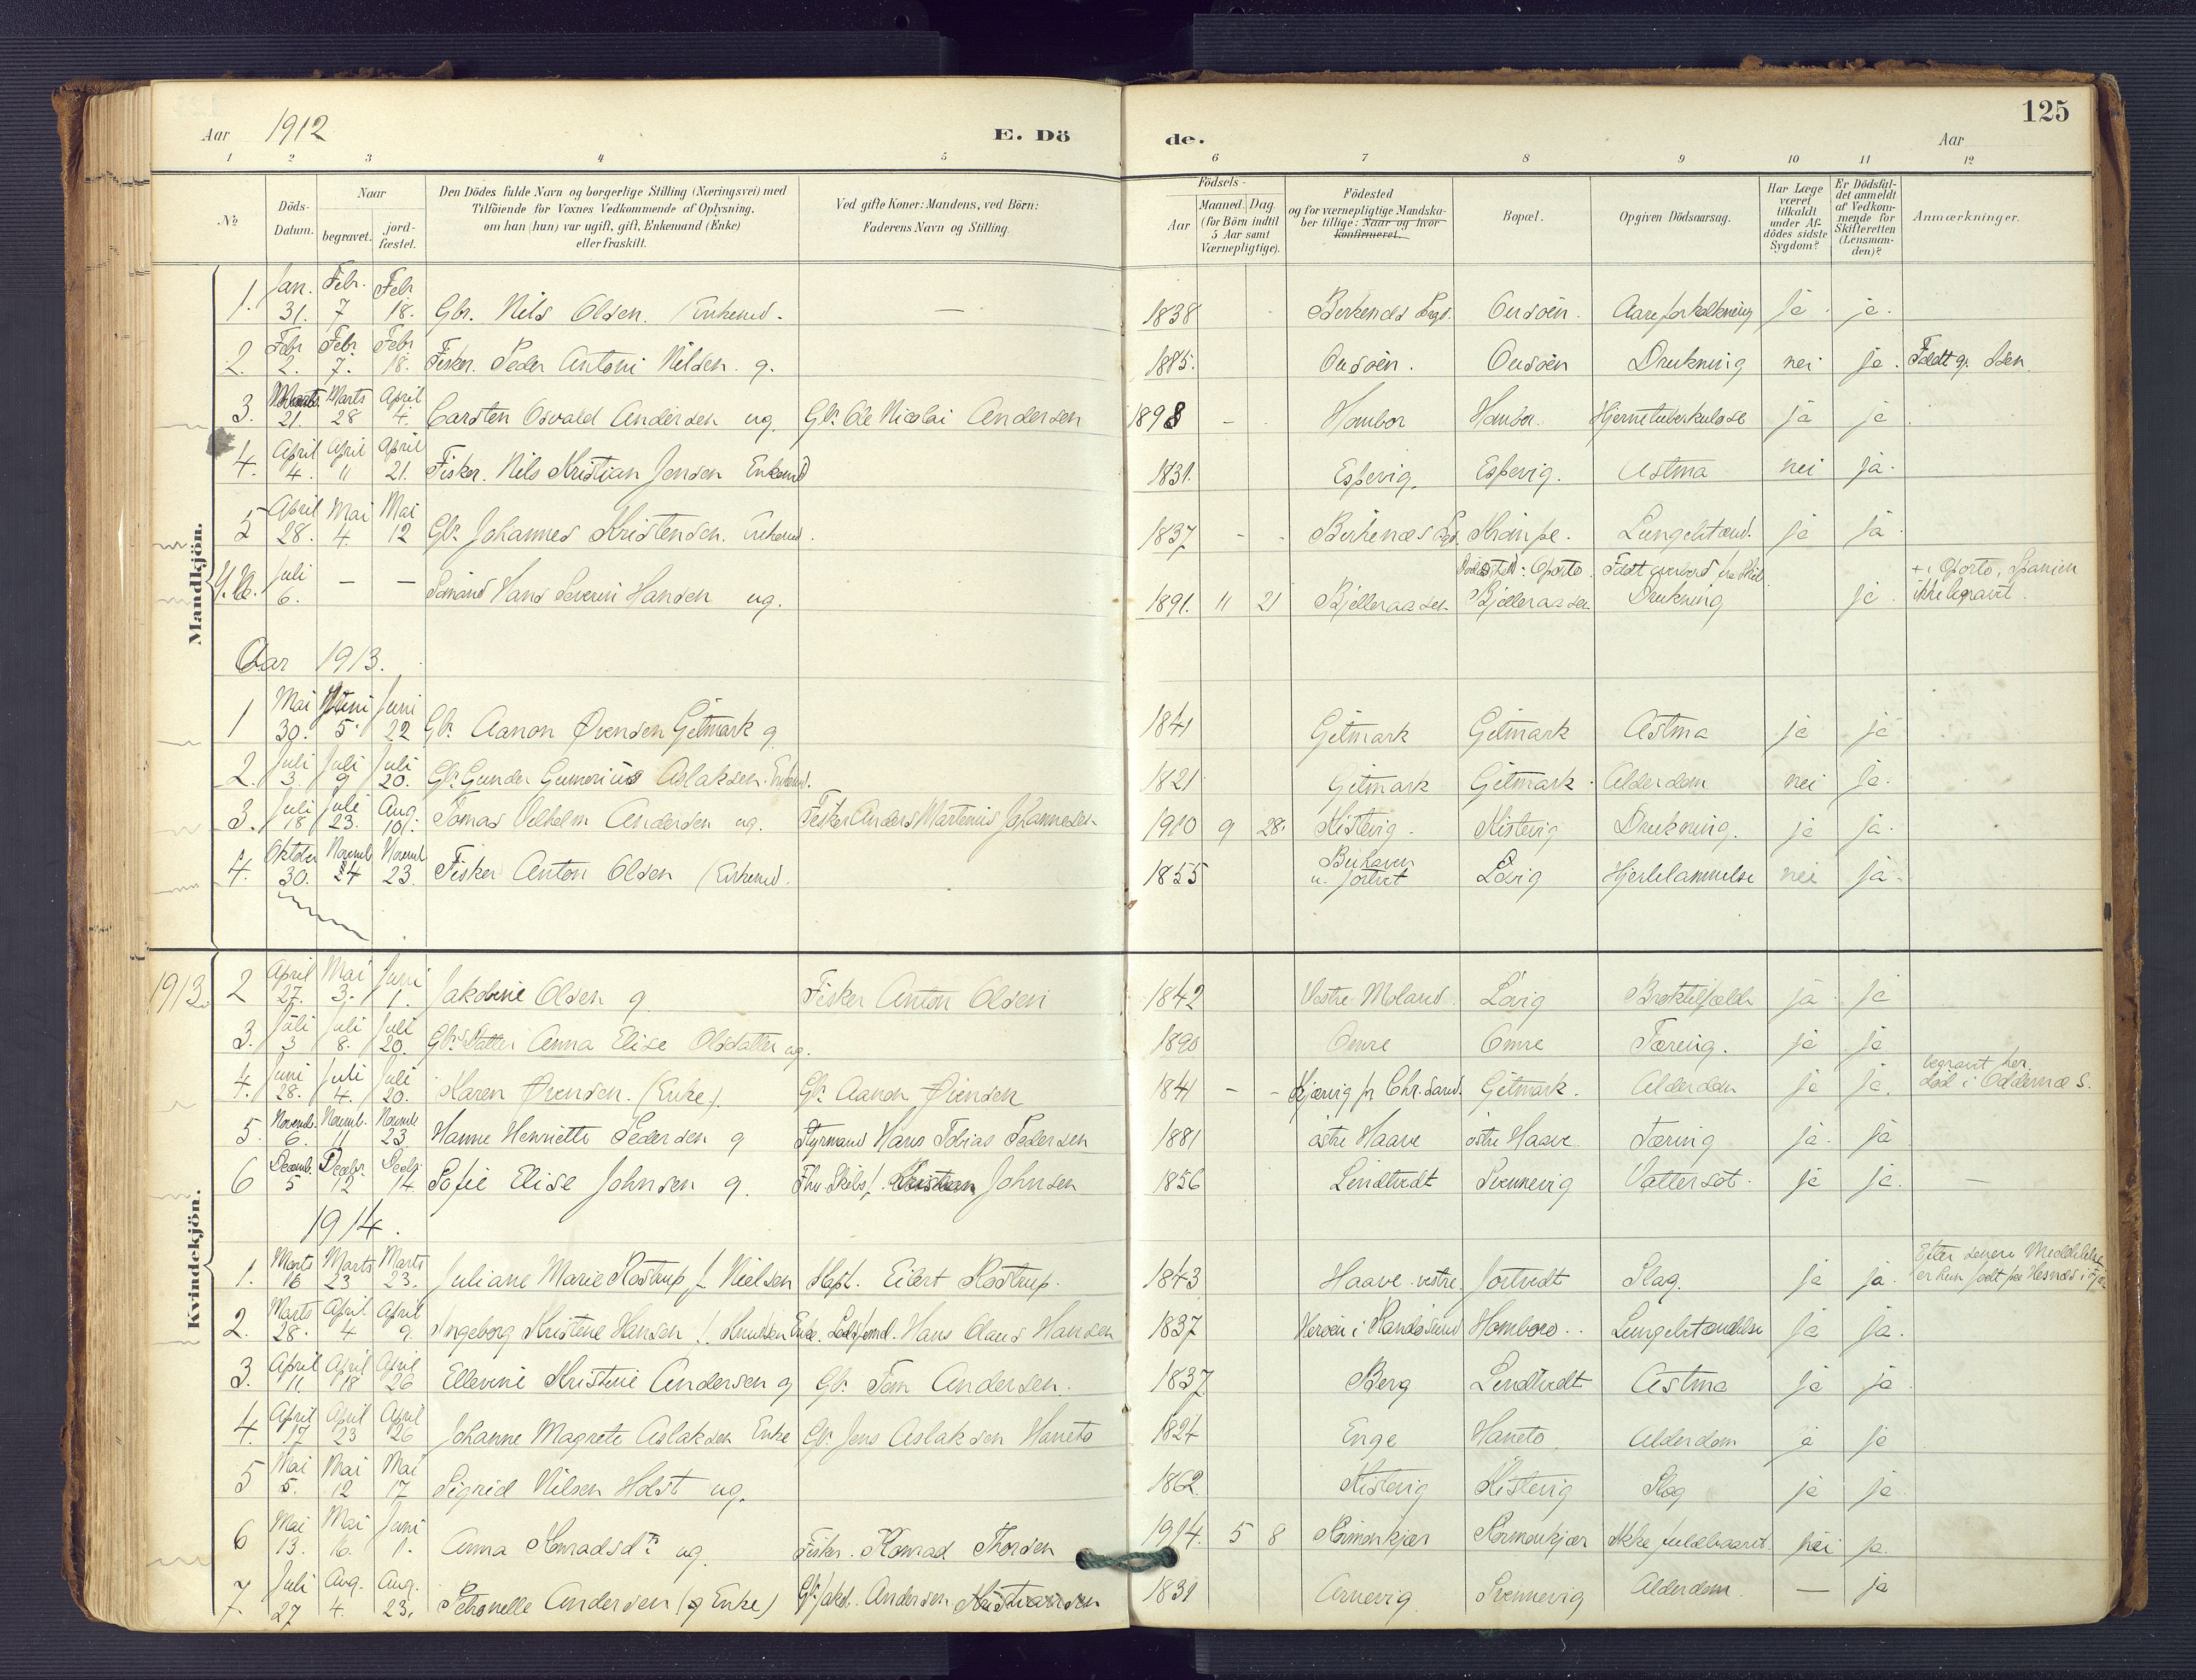 125
Aar 1912 E. Dö de. Aar
1 2 3 4 5 6 7 8 9 10 11 12
No
Döds-Datum.
Naar
begravet.
jord-fæstet.
Den Dödes fulde Navn og borgerlige Stilling (Næringsvei) med
Tilföiende for Voxnes Vedkommende af Oplysning,
om han (hun) var ugift, gift, Enkemand (Enke)
eller fraskilt.
Ved gifte Koner: Mandens, ved Börn:
Faderens Navn og Stilling.
Födsels-
Aar
Maaned. Dag.
(for Börn indtil
5 Aar samt
Værnepligtige).
Födested
og for værnepligtige Mandska-
ber tillige: Naar og hvor
konfirmeret.
Bopæl.
Opgiven Dödsaarsag.
Har Læge
været
tilkaldt
under Af-
dödes sidste
Sygdom?
Er Dödsfal-
det anmeldt
af Vedkom-
mende for
Skifteretten
(Lensman-
den)?
Anmærkninger.
Mandkjön.
1. Jan. 31. Febr. 7 Febr 18. Gbr. Nils Olsen. Enkemd. — 1838 Birkenes Ousöen. Aareforkalkning ja. ja.
2. Febr 2. Febr. 7. Febr. 18. Fisker. Peder Antoni Nilsen. g. 1885. Ousöen. Ousöen Drukning nei ja.
3. Marts 21. Marts 28 April 4. Carsten Osvald Andersen ug. Gbr. Ole Nicolai Andersen 1898 - Hombor Hombor. Hjernetuberkulose ja ja
4. April 4. April 11 April 21. Fisker. Nils Kristian Jensen Enkemd 1831. Espevig. Espevig. Astma nei ja.
5 April 28. Mai 4. Mai 12 Gbr. Johannes Kristensen. Enkemd. 1837 - Birkenæs Lungebetænd. ja ja
Juli 6. — — Sømand Hans Severin Hansen ug. 1891. 11 21 Bjelleraasen Dødssted: Oporto. Bjelleraasen Faldt overbord fra Skib. Drukning ja. + i Oporto, Spanien
ikke begravet.
Aar 1913.
1 Mai 30. Juni 5. Juni 22 Gbr. Aanon Øvensen Gitmark g. 1841 Gitmark Gitmark Astma ja ja
2. Juli 3. Juli 9 Juli 20. Gbr. Gunder Gumerius Aslaksen. Enkemd. 1821 Gitmark Gitmark. Alderdom nei ja.
3. Juli 18 Juli 23. Aug. 10. Tomas Vilhelm Andersen ug. Fisker Anders Martinius Johannesen 1910 9 28. Kistevig. Kistevig Drukning. ja ja.
4. Oktober 30. Novemb. 4 Novemb 23. Fisker Anton Olsen Enkemd. 1855 Lövig Hjertelammelse nei ja.
Kvindekjön.
1913. 2 April 27. Mai 3. Juni 1. Jakobine Olsen g. Fisker Anton Olsen 1842 Vestre Moland. Lövig ja ja
3. Juli 3 Juli 8. Juli 20. Gbrs Datter Anna Elise Olsdatter ug. 1890 Omre Omre Tæring. ja ja
4. Juni 28. Juli 4. Juli 20. Karen Øvensen. (Enke). Gbr. Aanon Øvensen 1841 - - Gitmark. Alderdom ja ja. begravet her,
död i Oddernæs.
5. Novemb. 6. Novemb. 11 Novemb 23. Hanne Henriette Pedersen g. Styrmand Hans Tobias Pedersen 1881 östre Haave östre Haave. Tæring ja. ja
6 Decemb. 5 Decbr. 12 Decbr. 14 Sofie Elise Johnsen g. Fhv. Skibsf. Kristian Johnsen 1856 Lindtvedt Svennevig Vattersot. ja ja. —
1914.
1. Marts 16 Marts 23 Marts 23. Juliane Marie Rostrup f. Nielsen Kapt. Eilert Rostrup. 1843 Haave vestre. Jortvedt Slag. ja ja. Efter senere Meddelelse
er hun født paa Hesnes i
2. Marts 28. April 4 April 9. Ingeborg Kristine Hansen f. Knudsen Enke. Hans Olaus Hansen 1837 Homboro. Lungebetændelse ja ja.
3. April 11. April 18 April 26 Ellevine Kristine Andersen g. Gbr. Tom Andersen. 1837 Berg Lindtvedt Astma ja ja
4. April 17 April 23 April 26 Johanne Magrete Aslaksen Enke Gbr. Jens Aslaksen Haneto 1824 Enge Haneto Alderdom ja ja
5 Mai 5. Mai 12 Mai 17 Sigrid Nilsen Holst ug. 1862. Kistevig Kistevig Slag ja ja
6 Mai 13. Mai 16. Juni 1. Anna Konradsdtr. ug. Fisker. Konrad Thorsen 1914. 5 8 Kormonkjær Kormonkjær Ikke fuldbaaret. nei ja.
7. Juli 27 Aug. 4. Aug. 23. Petronelle Andersen (g Enke) Gbr. Jakob. Andersen 1831 Arnevig Svennevig Alderdom. — ja